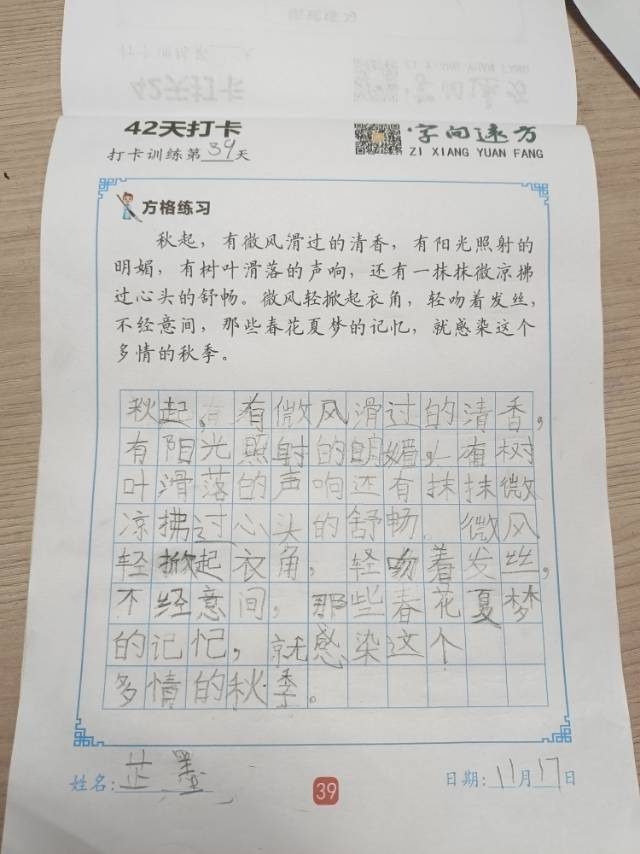 42天打卡
打卡训练第39天
字向远方
ZI XIANG YUAN FANG
方格练习
秋起，有微风滑过的清香，有阳光照射的
明媚，有树叶滑落的声响，还有一抹抹微凉拂
过心头的舒畅。微风轻掀起衣角，轻吻着发丝，
不经意间，那些春花夏梦的记忆，就感染这个
多情的秋季。
秋起，有有微风滑过的清香，
有阳光照射的明媚，有树
叶滑落的声响还有抹抹微
凉拂过心头的舒畅。微风
轻掀起衣角，轻吻着发丝，
不经意间，那些春花夏梦
的记忆，就感染这个
多情的秋季。
姓名：芷墨
39
日期：11月17日